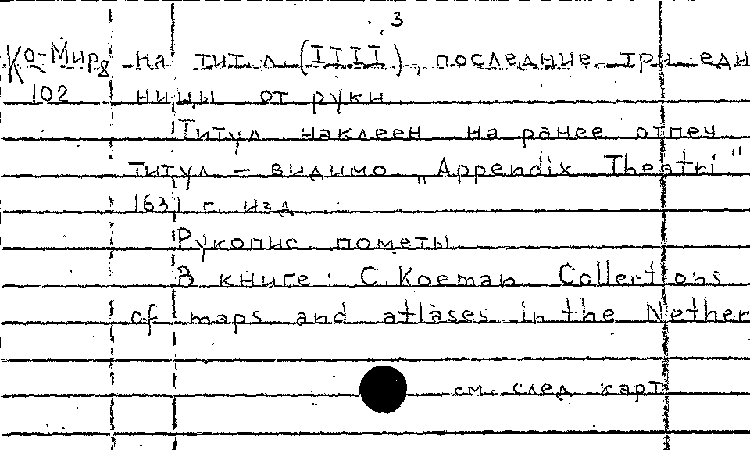 3
Ко-Мир8 на тит. л (IIII), последние три еди
102 ницы от руки
Титул наклеен на ранее отпеч
титул – видимо „Appendix Theatri"
1631 г изд
Рукопис пометы
В книге: C. Koeman Collections
of maps and atlases in the Nether
см. след карт